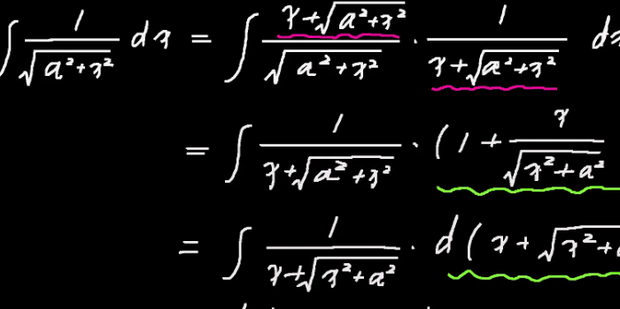 ∫ 1/√(a²+x²) dx = ∫ (x+√(a²+x²))/√(a²+x²) · 1/(x+√(a²+x²)) dx
= ∫ 1/(x+√(a²+x²)) · (1 + x/√(x²+a²)
= ∫ 1/(x+√(x²+a²)) · d(x + √(x²+a